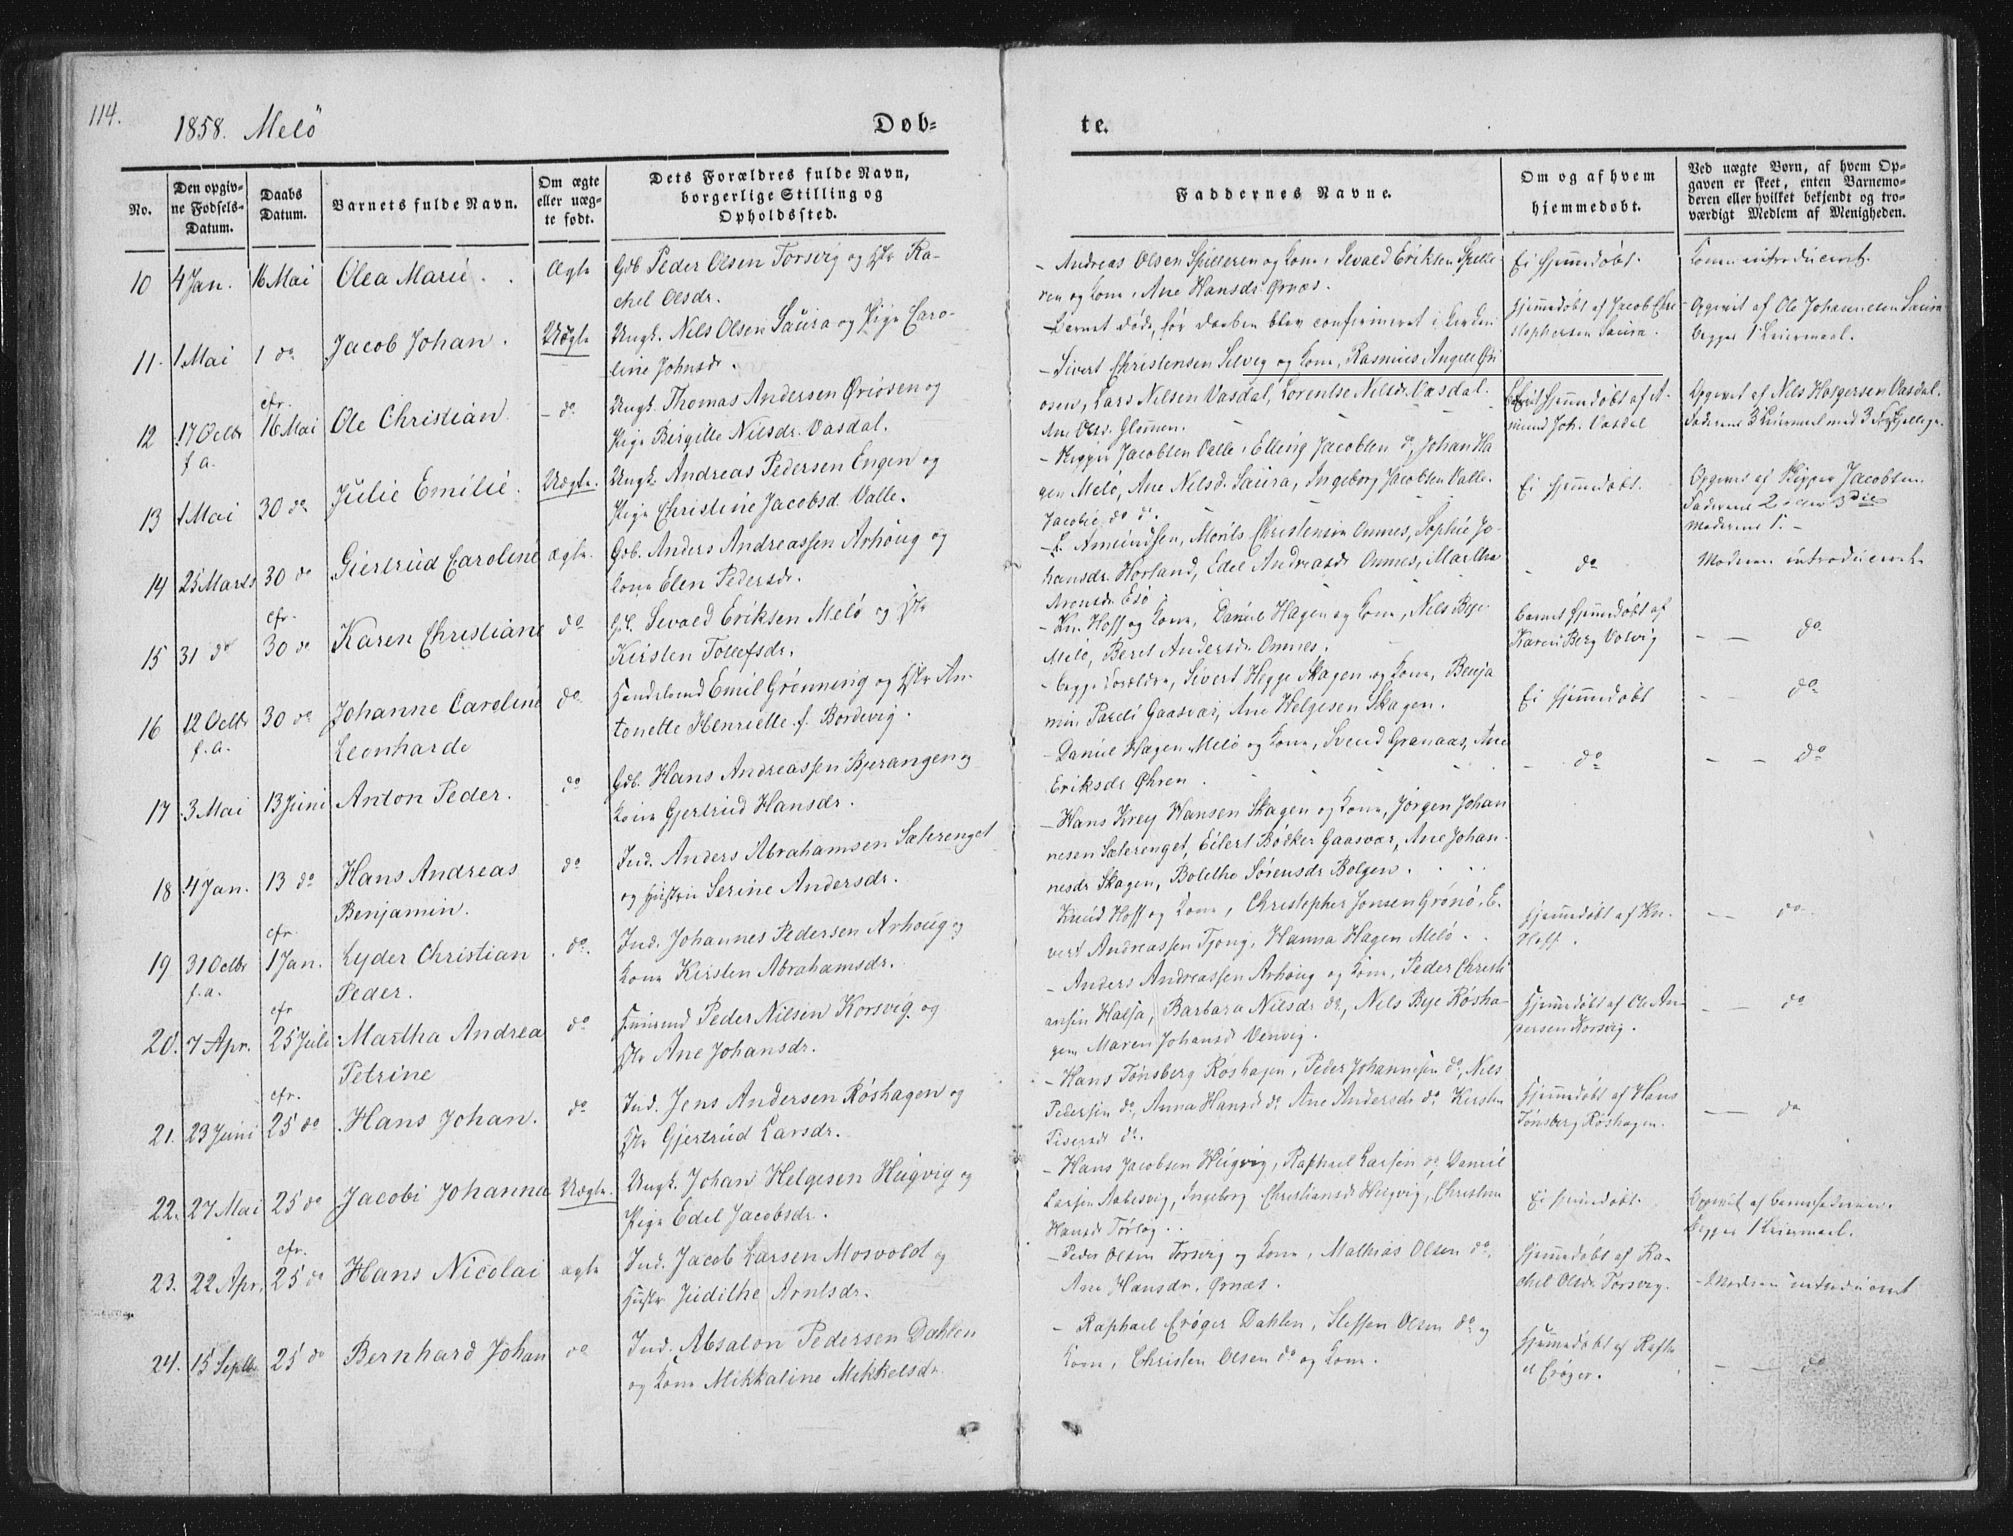 114.
1858. Melö
Döb-
te.
No.
Den opgiv-
ne Fødsels-
Datum.
Daabs
Datum.
Barnets fulde Navn.
Om ægte
eller uæg-
te født.
Dets Forældres fulde Navn,
borgerlige Stilling og
Opholdssted.
Faddernes Navne.
Om og af hvem
hjemmedøbt.
Ved uægte Børn, af hvem Op-
gaven er skeet, enten Barnemo-
deren eller hvilket bekjendt og tro-
værdigt Medlem af Menigheden.
10 4 Jan. 16 Mai Olea Marie. Ægte Gdb Peder Olsen Torsvig og Ra-
chel Olsdr.
- Andreas Olsen Spilleren og Kone, Sevald Eriksen Spille-
ren og Kone, Ane Hansdr Ørnæs.
Ei hjemmedøbt.
Konen introduceret.
11. 1 Mai 1 do Jacob Johan. Uægte Ungk. Nils Olsen Saura og Pige Caro-
line Johnsdr.
- Barnet døde, før Daaben blev confirmeret i Kirken
Hjemmedøbt af Jacob Chri
stophersen Saura.
- Opgivet af Ole Johannesen Saura
begges 1 Leiermaal.
12 17 Octbr f.a. cfr. 16 Mai Ole Christian - do Ungk. Thomas Andersen Øriosen og
Pige Birgitte Nilsdr. Vasdal.
- Sivert Christensen Selvig og Kone, Rasmus Angell Øri
osen, Lars Nilsen Vasdal, Lorentse Nilsdr. Vasdal.
Ane Olsd. Glomen.
hjemmedøbt af A-
mund Joh. Vasdal
Opgivet af Nils Holgersen Vasdal.
Faderens 3 Leiermaal med 3
13 1 Mai 30 do Julie Emilie. Uægte. Ungk. Andreas Pedersen Engen og
Pige Christine Jacobsd Valle.
- Jacobsen Valle, Elling Jacobsen do, Johan Ha
gen Melö, Ane Nilsd. Saura, Ingeborg Jacobsen Valle.
Jacobie do do.
Ei hjemmedøbt.
Opgivet af Jacobsen.
Faderens 2 3die
moderens 1. -
14 25 Marts 30 do Giertrud Caroline ægte. Gdb. Anders Andreassen Arhöug og
Kone Elen Pedersdr.
Amundsen, Morits Christensen Onnes, Sophie Jo-
hansdr Horland, Edel Andreasdr Onnes, Martha
Aronsdr Esö
- do
Moderen introduceret.
15 31 do cfr. 30 do Karen Christiane do Gb. Sevald Eriksen Melö og
Kirsten Tollefsdr.
- Kn. Hoff og Kone, Daniel Hagen og Kone, Nils Bye
Melö, Beret Andersdr Onnes.
Barnet hjemmedøbt af
Karen Berg Valvig
- - do
16 12 Octbr f.a. 30 do Johanne Caroline
Leonharde
do Emil Grønning og An-
tonette Henriette f. Bordevig.
- begge Forældre, Sivert Hegge Skagen og Kone, Benja
min Gaasvær, Ane Helgesen Skagen.
Ei hjemmedøbt
- - do
17 3 Mai 13 Juni Anton Peder. do Gdb. Hans Andreassen Bjerangen og
Kone Gjertrud Hansdr.
- Daniel Hagen Melö og Kone, Svend Grønaas, Ane
Eriksdr Øhren.
- do
- - do
18 4 Jan. 13 do Hans Andreas
Benjamin.
do Ind. Anders Abrahamsen Sæterenget
og Hustru Serine Andersdr.
- Hans Krey Hansen Skagen og Kone, Jørgen Johan
nesen Sæterenget, Eilert Bödker Gaasvær, Ane Johan-
nesdr Skagen, Bolethe Sørensdr Bolgen.
19 31 Octbr f.a. cfr. 1 Jan. Lyder Christian
Peder.
do. Ind. Johannes Pedersen Arhöug og
Kone Kirsten Abrahamsdr.
Knud Hoff og Kone, Christopher Jonsen Grönö, E-
vert Andreassen Tjong, Hanna Hagen Melö.
Hjemmedøbt af Kn.
Hoff.
- - do
20. 7 Apr. cfr 25 Juli Martha Andrea
Petrine
do Peder Nilsen Korsvig og
Ane Johansdr.
- Anders Andreassen Arhöug og Kone, Peder Christi
ansen Halsa, Barbara Nilsdr do, Nils Bye Røsha-
gen Maren Johansd Venvig.
Hjemmedøbt af Ole An-
dersen Korsvig.
- - do
21. 23 Juni cfr. 25 do Hans Johan. do Ind. Jens Andersen Röshagen og
Gjertrud Larsdr.
- Hans Tönsberg Röshagen, Peder Johannesen do, Nils
Pedersen do, Anna Hansd do Ane Andersdr do Kirsten
do.
Hjemmedøbt af Hans
Tönsberg Röshagen.
- do
22. 27 Mai 25 do Jacobi Johanna Uægte. Ungk. Johan Helgesen Heigvig og
Pige Edel Jacobsdr.
- Hans Jacobsen Heigvig, Raphael Larsen do, Daniel
Larsen Aalesvig, Ingeborg Christiansd Heigvig, Christine
Hansd
Ei hjemmedøbt.
Opgivet af Barnefaderen.
Begges 1 Leiermaal.
23. 22 Apr. cfr. 25 do Hans Nicolai ægte Ind. Jacob Larsen Mosvold og
Hustr Judithe Arntsdr.
- Peder Olsen Torsvig og Kone, Mathias Olsen do.
Ane Hansdr. Ørnæs.
hjemmedøbt af Ra-
chel Olsdr Torsvig.
- Moderen introduceret
24. 15 Septbr 25 do Bernhard Johan do Ind. Absalon Pedersen Dahlen
og Kone Mikkaline Mikkelsdr.
- Raphael Crøger Dahlen, Steffen Olsen do og
Kone, Christen Olsen do og Kone.
Hjemmedøbt af Rapha
el Crøger.
- - do